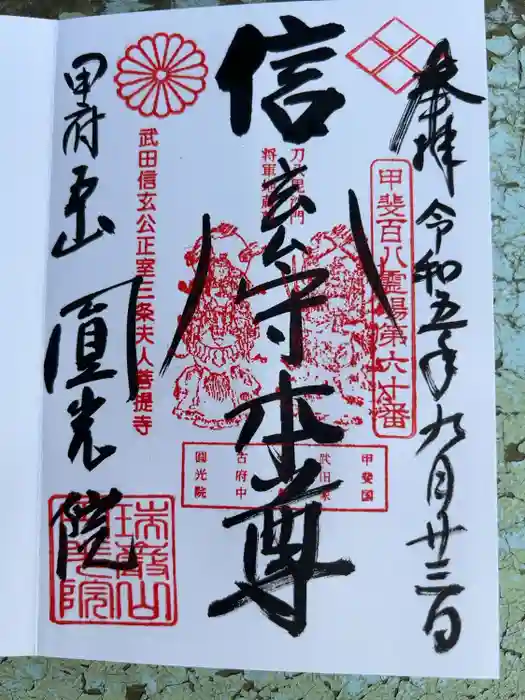 奉拝
令和五年九月廿三日
甲斐百八霊場第六十番
信玄公守本尊
刀八毘沙門
将軍地蔵
甲斐国
武田家
古府中
圓光院
武田信玄公正室三条夫人菩提寺
甲府五山
圓光院
瑞巌山
圓光院